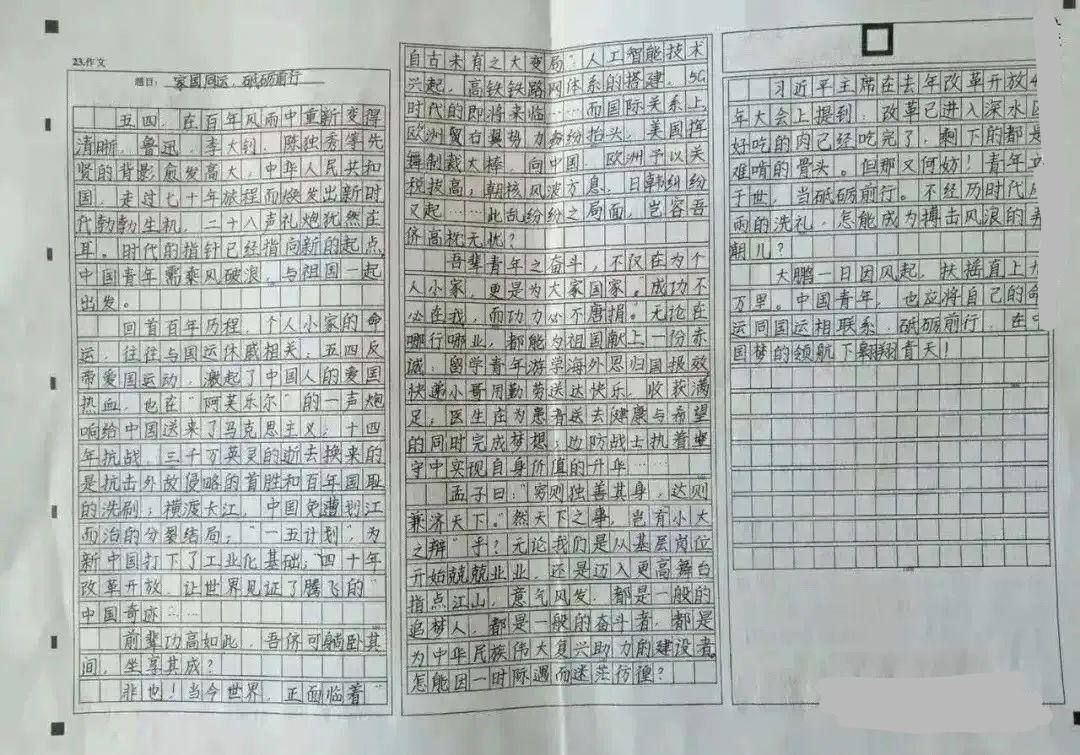 23.作文
题目：家国同运，砥砺前行
五四，在百年风雨中重新变得
清晰，鲁迅、李大钊、陈独秀等先
贤的背影愈发高大，中华人民共和
国，走过七十年旅程而焕发出新时
代勃勃生机，二十八声礼炮犹然在
耳。时代的指针已经指向新的起点，
中国青年需乘风破浪，与祖国一起
出发。
回首百年历程，个人小家的命
运，往往与国运休戚相关：五四反
帝爱国运动，激起了中国人的爱国
热血，也在“阿芙乐尔”的一声炮
响给中国送来了马克思主义；十四
年抗战，三千万英灵的逝去换来的
是抗击外敌侵略的首胜和百年国耻
的洗刷；横渡大江，中国免遭划江
而治的分裂结局；“一五计划”，为
新中国打下了工业化基础；四十年
改革开放，让世界见证了腾飞的“
中国奇迹……
前辈功高如此，吾侪可躺卧其
间，坐享其成？
非也！当今世界，正面临着“
自古未有之大变局”人工智能技术
兴起，高铁铁路网体系的搭建，5G
时代的即将来临……而国际关系上，
欧洲贸右翼势力纷纷抬头，美国挥
舞制裁大棒，向中国、欧洲予以关
税拔高；朝核风波方息，日韩纠纷
又起……此乱纷纷之局面，岂容吾
侪高枕无忧？
吾辈青年之奋斗，不仅在为个
人小家，更是为大家国家。“成功不
必在我，而功力必不唐捐。”无论在
哪行哪业，都能为祖国献上一份赤
诚：留学青年游学海外思归国报效，
快递小哥用勤劳送达快乐，收获满
足，医生在为患者送去健康与希望
的同时完成梦想；边防战士执着坚
守中实现自身价值的升华……
孟子曰：“穷则独善其身，达则
兼济天下。”然天下之事，岂有小大
之辩“乎？无论我们是从基层岗位
开始兢兢业业，还是迈入更高舞台
指点江山，意气风发，都是一般的
追梦人，都是一般的奋斗者，都是
为中华民族伟大复兴助力的建设者，
怎能因一时际遇而迷茫彷徨？
习近平主席在去年改革开放4
年大会上提到，改革已进入深水区
好吃的肉已经吃完了，剩下的都是
难啃的骨头。但那又何妨！青年立
于世，当砥砺前行。不经历时代风
雨的洗礼，怎能成为搏击风浪的弄
潮儿？
大鹏一日因风起，扶摇直上九
万里。中国青年，也应将自己的命
运同国运相联系，砥砺前行，在中
国梦的领航下翱翔青天！